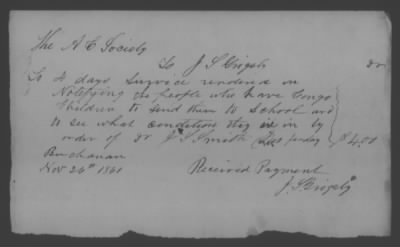 The A C Society
To J S Grigsby Dr
To 4 days Survice rendered in
Notifying the people who have Congo
Children to send them to School and
to see what condition they is in by
order of Dr J S Smith per day $4.00
Buchanan
Nov 26th 1861 Received Payment
J. S Grigsby